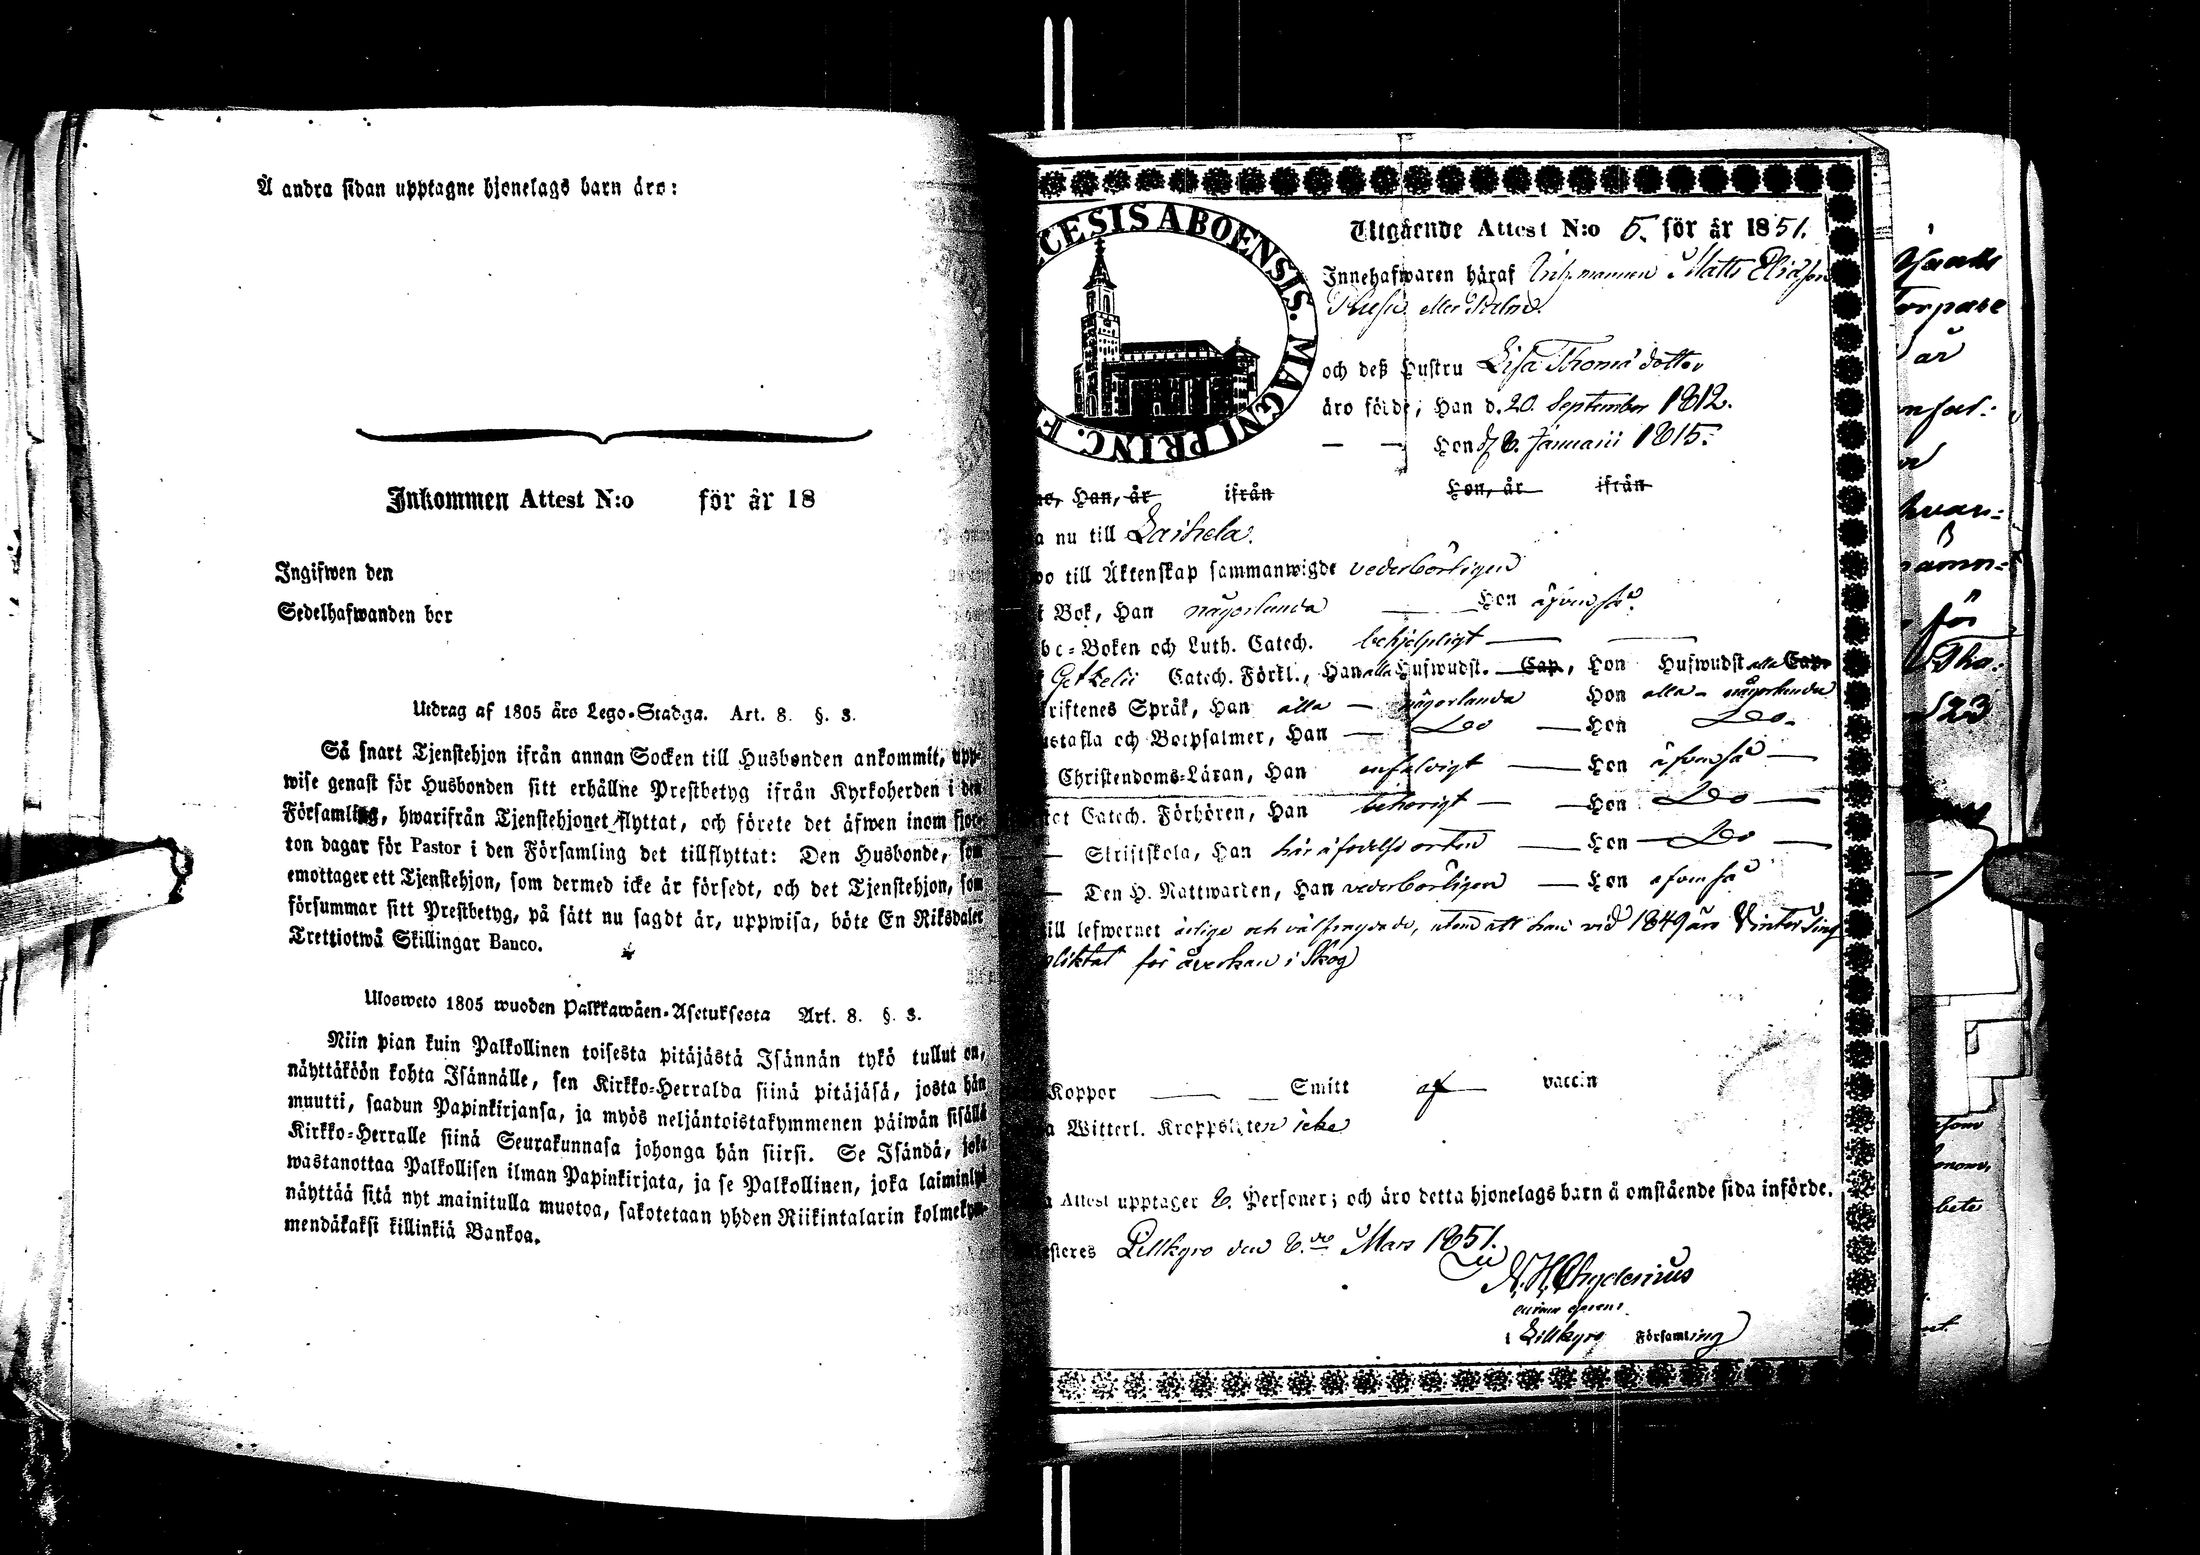 Å andra sidan upptagne hjonelags barn äro:
Inkommen Attest N:o för år 18
Ingifwen den
Sedelhafwanden bor
Utdrag af 1805 års Lego-Stadga. Art. 8. §. 3.
Så snart Tjenstehjon ifrån annan Socken till Husbonden ankommit, upp-
wise genast för Husbonden sitt erhållne Prestbetyg ifrån Kyrkoherden i den
Församling, hwarifrån Tjenstehjonet flyttat, och förete det äfwen inom fjor-
ton dagar för Pastor i den Församling det tillflyttat: Den Husbonde, som
emottager ett Tjenstehjon, som dermed icke är försedt, och det Tjenstehjon, som
försummar sitt Prestbetyg, på sätt nu sagdt är, uppwisa, böte En Riksdaler
Trettiotwå Skillingar Banco.
Ulosweto 1805 wuoden Palkkawäen-Asetuksesta Art. 8. §. 3.
Niin pian kuin Palkollinen toisesta pitäjästä Isännän tykö tullut on,
näyttäköön kohta Isännälle, sen Kirkko-Herralda siinä pitäjäsä, josta hän
muutti, saadun Papinkirjansa, ja myös neljäntoistakymmenen päiwän sisällä
Kirkko-Herralle siinä Seurakunnasa johonga hän siirsi. Se Isändä, joka
wastanottaa Palkollisen ilman Papinkirjata, ja se Palkollinen, joka laiminlyö
näyttää sitä nyt mainitulla muotoa, sakotetaan yhden Riikintalarin kolmekym-
mendäkaksi killinkiä Bankoa.
CESIS ABOENSIS. MAGNI PRINC. F
Utgående Attest N:o 5. för år 1851.
Innehafwaren häraf Matts Elias son
eller
och deß Hustru Lisa Thomæ dotter
äro födde; Han d. 20 September 1812.
— — Hon d 8. Januarii 1815.
Han, år ifrån Hon, år ifrån
a nu till Laihela.
till Äktenskap sammanwigde vederbörligen
Bok, Han någorlunda — Hon äfvenså
bc-Boken och Luth. Catech. behjelpligt —
Getzelii Catech. Förkl., Han alla Hufwudst. Cap, Hon Hufwudst alla Cap.
riftenes Språk, Han alla — någorlunda Hon alla - någorlunda
ustafla och Botpsalmer, Han — Do — Hon Do
Christendoms-Läran, Han enfaldigt — Hon äfvenså —
Catech. Förhören, Han behörigt — Hon Do —
Skriftskola, Han här å födelse orten — Hon — Do —
Den H. Nattwarden, Han vederbörligen — Hon äfvenså
till lefwernet ärlige och välfrejdade, utom att han vid 1849 års Vinter Ting
pliktat för åverkan i Skog
Koppor — Smitt af vaccin
a Witterl. Kroppslyten icke
a Attest upptager 2. Personer; och äro detta hjonelags barn å omstående sida införde.
esteres Lillkyro den 8.de Mars 1851.
A. H. Chydenius
i Lillkyro Församling
Torpare
är
för
Tho-
523